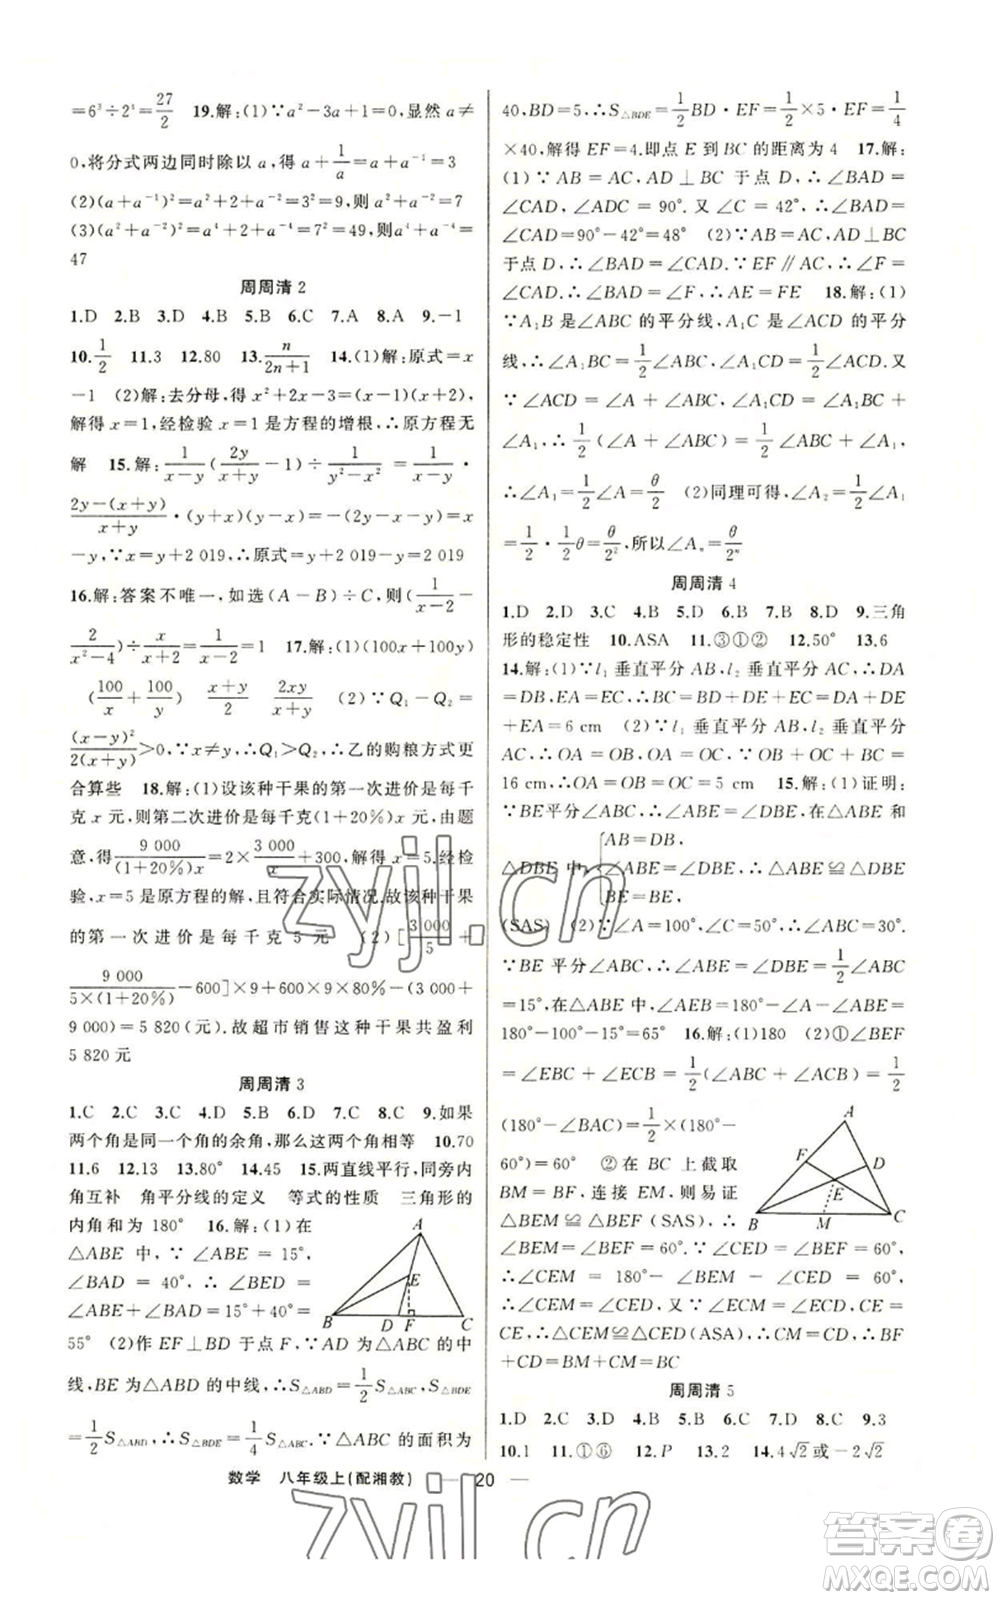 =6³÷2¹=27/2　19.解:(1)∵a²-3a+1=0,显然a≠
0,将分式两边同时除以a,得a+1/a=a+a⁻¹=3
(2)(a+a⁻¹)²=a²+2+a⁻²=3²=9,则a²+a⁻²=7
(3)(a²+a⁻²)²=a⁴+2+a⁻⁴=7²=49,则a⁴+a⁻⁴=
47
周周清2
1.D　2.B　3.D　4.B　5.B　6.C　7.A　8.A　9.-1
10.1/2　11.3　12.80　13.n/(2n+1)　14.(1)解:原式=x
-1　(2)解:去分母,得x²+2x-3=(x-1)(x+2),
解得x=1,经检验x=1是方程的增根,∴原方程无
解　15.解:1/(x-y)(2y/(x+y)-1)÷1/(y²-x²)=1/(x-y)·
(2y-(x+y))/(x+y)·(y+x)(y-x)=-(2y-x-y)=x
-y,∵x=y+2 019,∴原式=y+2 019-y=2019
16.解:答案不唯一,如选(A-B)÷C=(1/(x-2)-
2/(x²-4))÷x/(x+2)=1/(x-2)　17.解:(1)(100x+100y)
(100/x+100/y)　(x+y)/2　2xy/(x+y)　(2)∵Q₁-Q₂=
(x-y)²/2(x+y)>0,∵x≠y,∴Q₁>Q₂,∴乙的购粮方式更
合算些　18.解:(1)设该种干果的第一次进价是每千
克x元,则第二次进价是每千克(1+20%)x元,由题
意,得9 000/(1+20%)x=2×3 000/x+300,解得x=5,经检
验,x=5是原方程的解,且符合实际情况,故该种干果
的第一次进价是每千克5元　(2)[3 000/5+
9 000/5×(1+20%)-600]×9+600×9×80%-(3 000+
9 000)=5 820(元).故超市销售这种干果共盈利
5 820元
周周清3
1.C　2.C　3.C　4.D　5.B　6.D　7.C　8.C　9.如果
两个角是同一个角的余角,那么这两个角相等　10.70
11.6　12.13　13.80°　14.45　15.两直线平行,同旁内
角互补　角平分线的定义　等式的性质　三角形的
内角和为180°　16.解:(1)在
△ABE中,∵∠ABE=15°,
∠BAD=40°,∴∠BED=
∠ABE+∠BAD=15°+40°=
55°　(2)作EF⊥BD于点F,∵AD为△ABC的中
线,BE为△ABD的中线,∴S△ABD=1/2S△ABC,S△BDE
=1/2S△ABD,∴S△BDE=1/4S△ABC.∵△ABC的面积为
A
E
B D F C
40,BD=5,∴S△BDE=1/2BD·EF=1/2×5·EF=1/4
×40,解得EF=4,即点E到BC的距离为4　17.解:
(1)∵AB=AC,AD⊥BC于点D,∴∠BAD=
∠CAD,∠ADC=90°.又∠C=42°,∴∠BAD=
∠CAD=90°-42°=48°　(2)∵AB=AC,AD⊥BC
于点D,∴∠BAD=∠CAD.∵EF∥AC,∴∠F=
∠CAD,∴∠BAD=∠F,∴AE=FE　18.解:(1)
∵A₁B是∠ABC的平分线,A₁C是∠ACD的平分
线,∴∠A₁BC=1/2∠ABC,∠A₁CD=1/2∠ACD.又
∵∠ACD=∠A+∠ABC,∠A₁CD=∠A₁BC+
∠A₁,∴1/2(∠A+∠ABC)=1/2∠ABC+∠A₁,
∴∠A₁=1/2∠A=θ/2　(2)同理可得,∠A₂=1/2∠A₁
=1/2·1/2θ=θ/2²,所以∠Aₙ=θ/2ⁿ
周周清4
1.D　2.D　3.C　4.B　5.D　6.B　7.D　8.D　9.三角
形的稳定性　10.ASA　11.③①②　12.50°　13.6
14.解:(1)∵l₁垂直平分AB,l₂垂直平分AC,∴DA
=DB,EA=EC,∴BC=BD+DE+EC=DA+DE
+EA=6 cm　(2)∵l₁垂直平分AB,l₂垂直平分
AC,∴OA=OB,OA=OC.∵OB+OC+BC=
16 cm,∴OA=OB=OC=5 cm　15.解:(1)证明:
∵BE平分∠ABC,∴∠ABE=∠DBE,在△ABE和
△DBE中,{AB=DB,∠ABE=∠DBE,BE=BE,∴△ABE≌△DBE
(SAS)　(2)∵∠A=100°,∠C=50°,∴∠ABC=30°.
∵BE平分∠ABC,∴∠ABE=∠DBE=1/2∠ABC
=15°,在△ABE中,∠AEB=180°-∠A-∠ABE=
180°-100°-15°=65°　16.解:(1)180　(2)①∠BEF
=∠EBC+∠ECB=1/2(∠ABC+∠ACB)=1/2
(180°-∠BAC)=1/2×(180°-
60°)=60°　②在BC上截取
BM=BF,连接EM,则易证
△BEM≌△BEF(SAS),∴
∠BEM=∠BEF=60°,
∴∠CEM=180°-∠BEM-∠CED=60°,
∴∠CEM=∠CED,又∵∠ECM=∠ECD,CE=
CE,∴△CEM≌△CED(ASA),∴CM=CD,∴BF
+CD=BM+CM=BC
A
F D
E
B M C
周周清5
1.D　2.C　3.D　4.D　5.C　6.B　7.C　8.C　9.3
10.1　11.①⑥　12.P　13.2　14.4√2或-2√2
数学　八年级上(配湘教)　—20—
zyjl.cn
zyjl.cn
答案卷
MXQE.COM